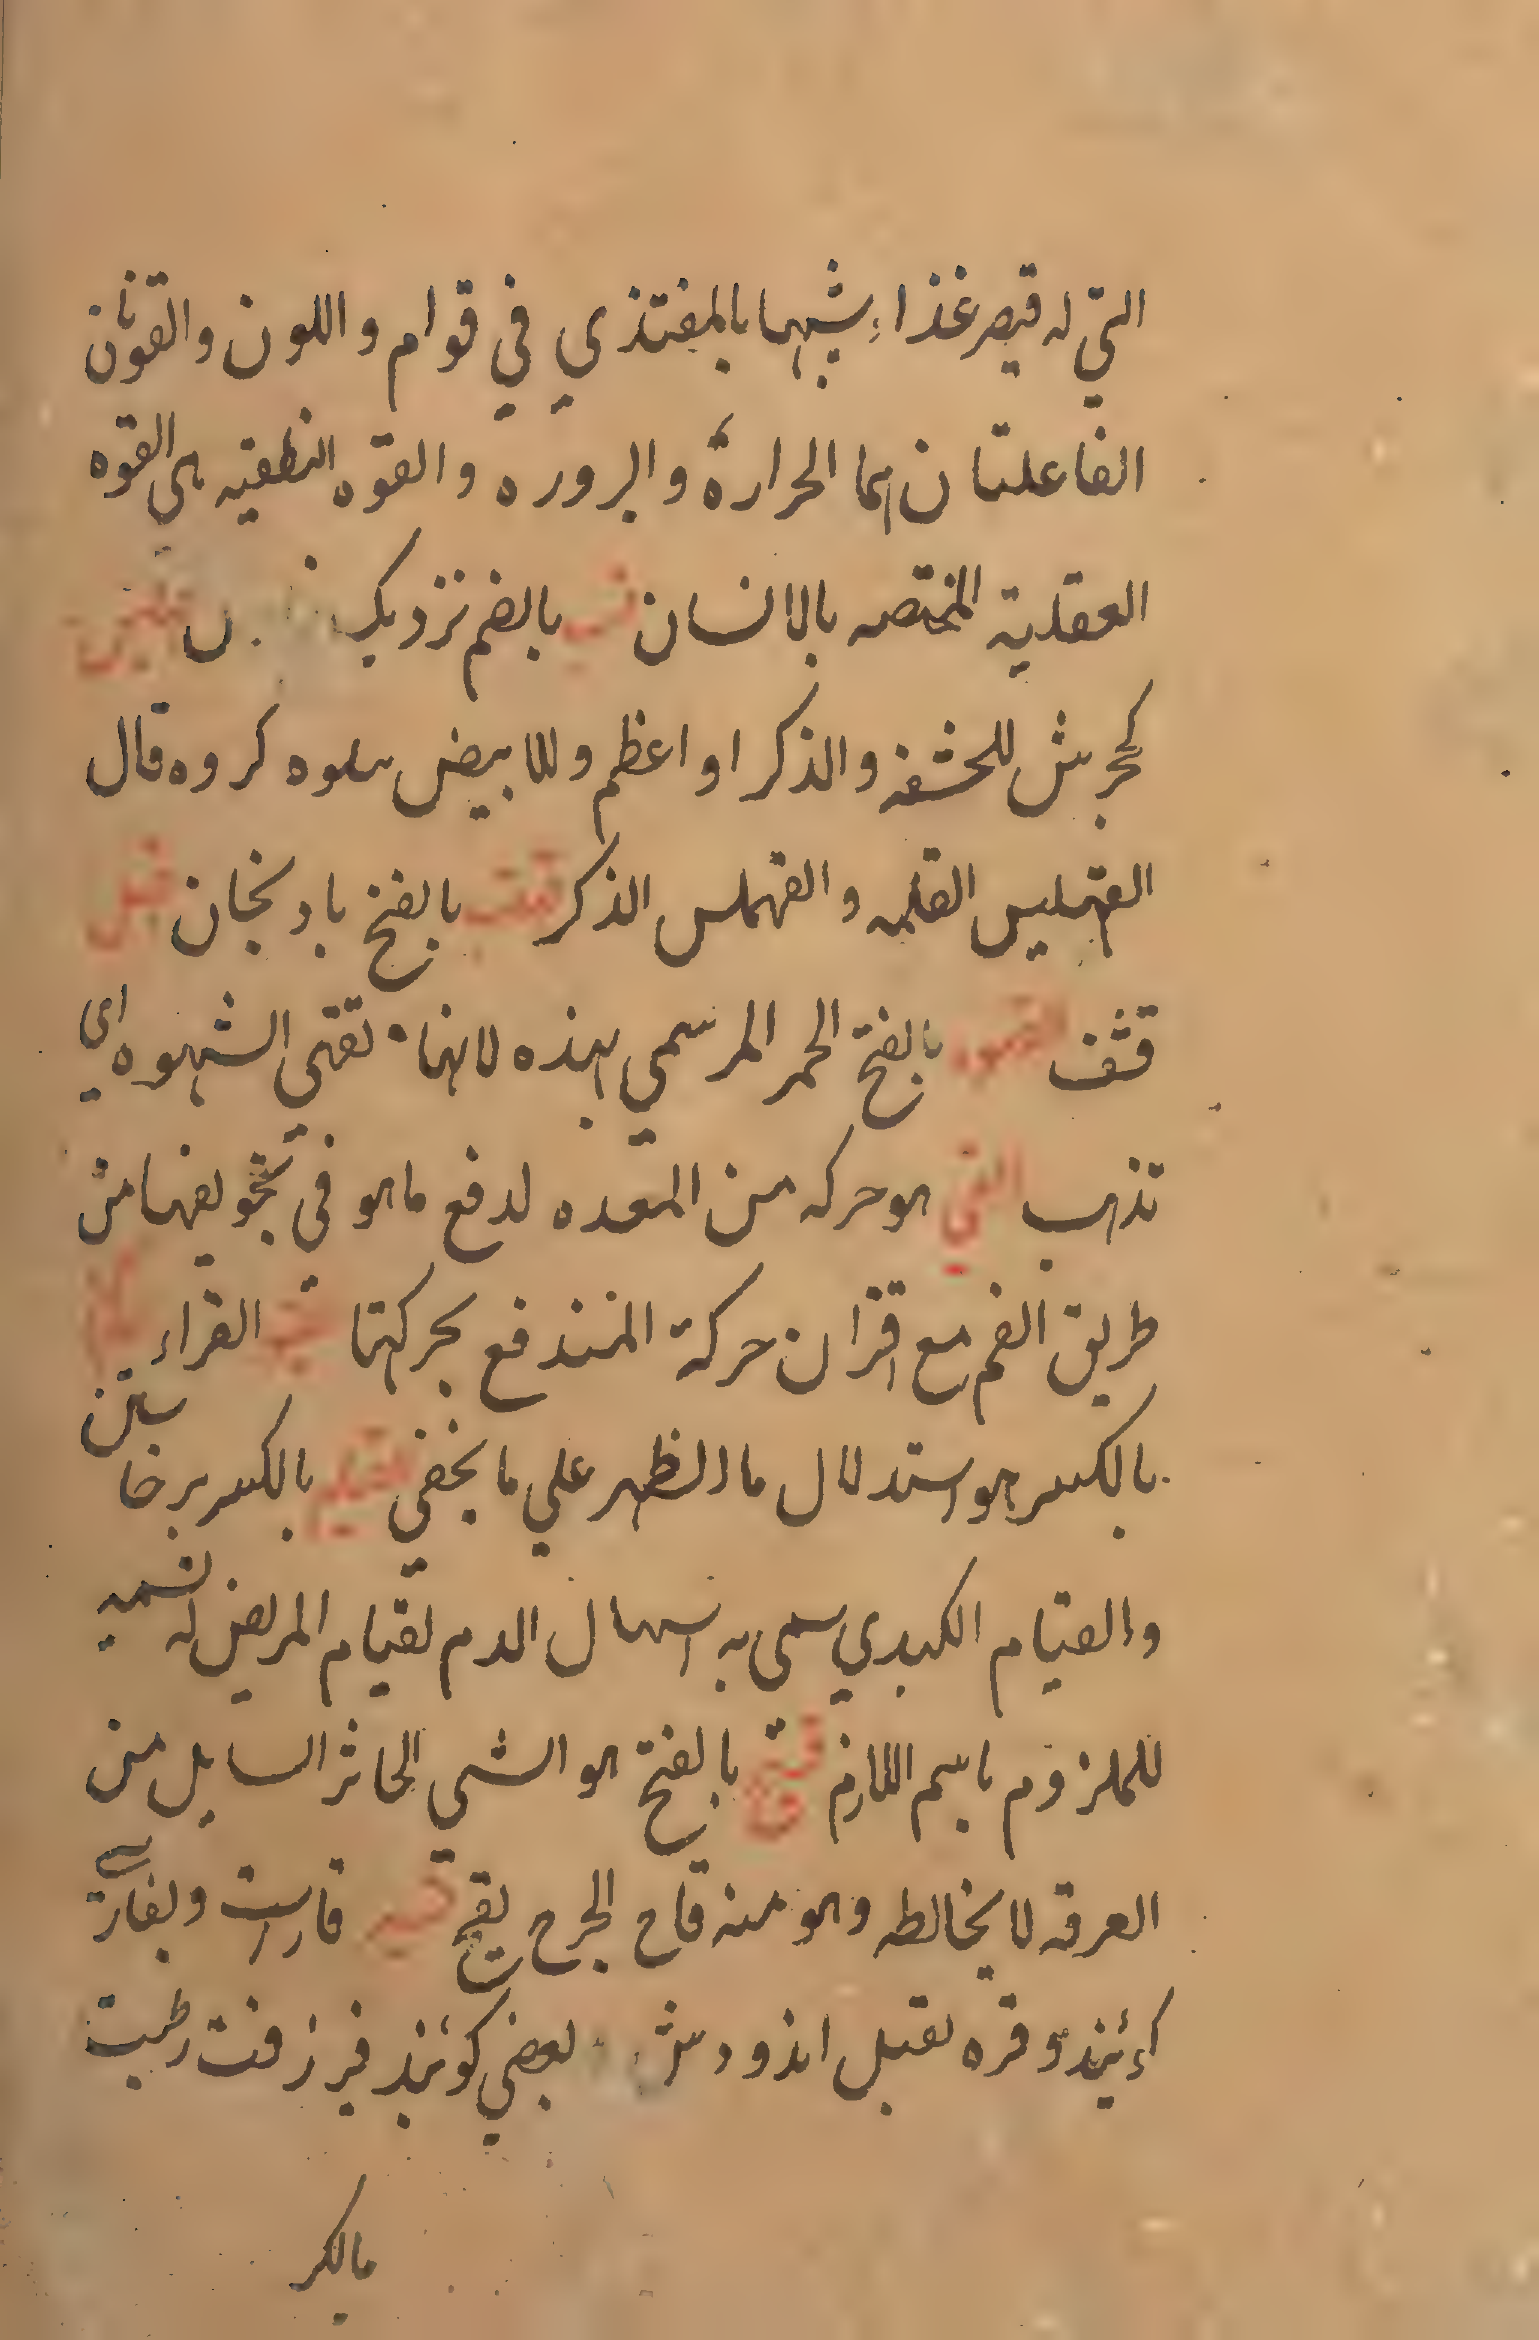 التي له قيصر غذاء شبيها بالمغتذي في قوام و اللون والقوتان
الفاعلتان هما الحرارة و البروره و القوه النطقيه هي القوه
العقلية المختصه بالانسان بالضم نزديك
كجرش للحشفه و الذكر او اعظم و للابيض سلوه كروه قال
القهليس القلمه و القهملس الذكر بالفتح بادنجان
قثف القهوه بالفتح الخمر المر سمي بهذه لانها تقهي الشهوه اي
تذهب القي هو حركه من المعده لدفع ما هو في تجويفها من
طريق الفم مع اقتران حركة المندفع بحركتها القراء
بالكسر هو استدلال ما الظهر علي ما يخفي بالكسر برخاستن
والقيام الكبدي سمى به اسهال الدم لقيام المريض له تسميه
للملزوم باسم اللازم قيح بالفتح هو الشي الخاثر السايل من
العرقه لا يخالطه و هو منه قاح الجرح يقيح قير قاراست و بفارسي
كوئيند و قره تقبل اندودش بعضي كوئيند قير زفت رطبت
مالكر